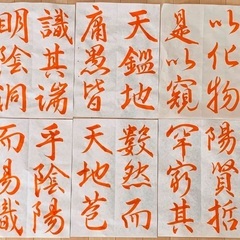 以化物
是以窺
天鑑地
庸愚皆
識其端
明陰洞
陽賢哲
罕窮其
數然而
天地苞
乎陰陽
而易識